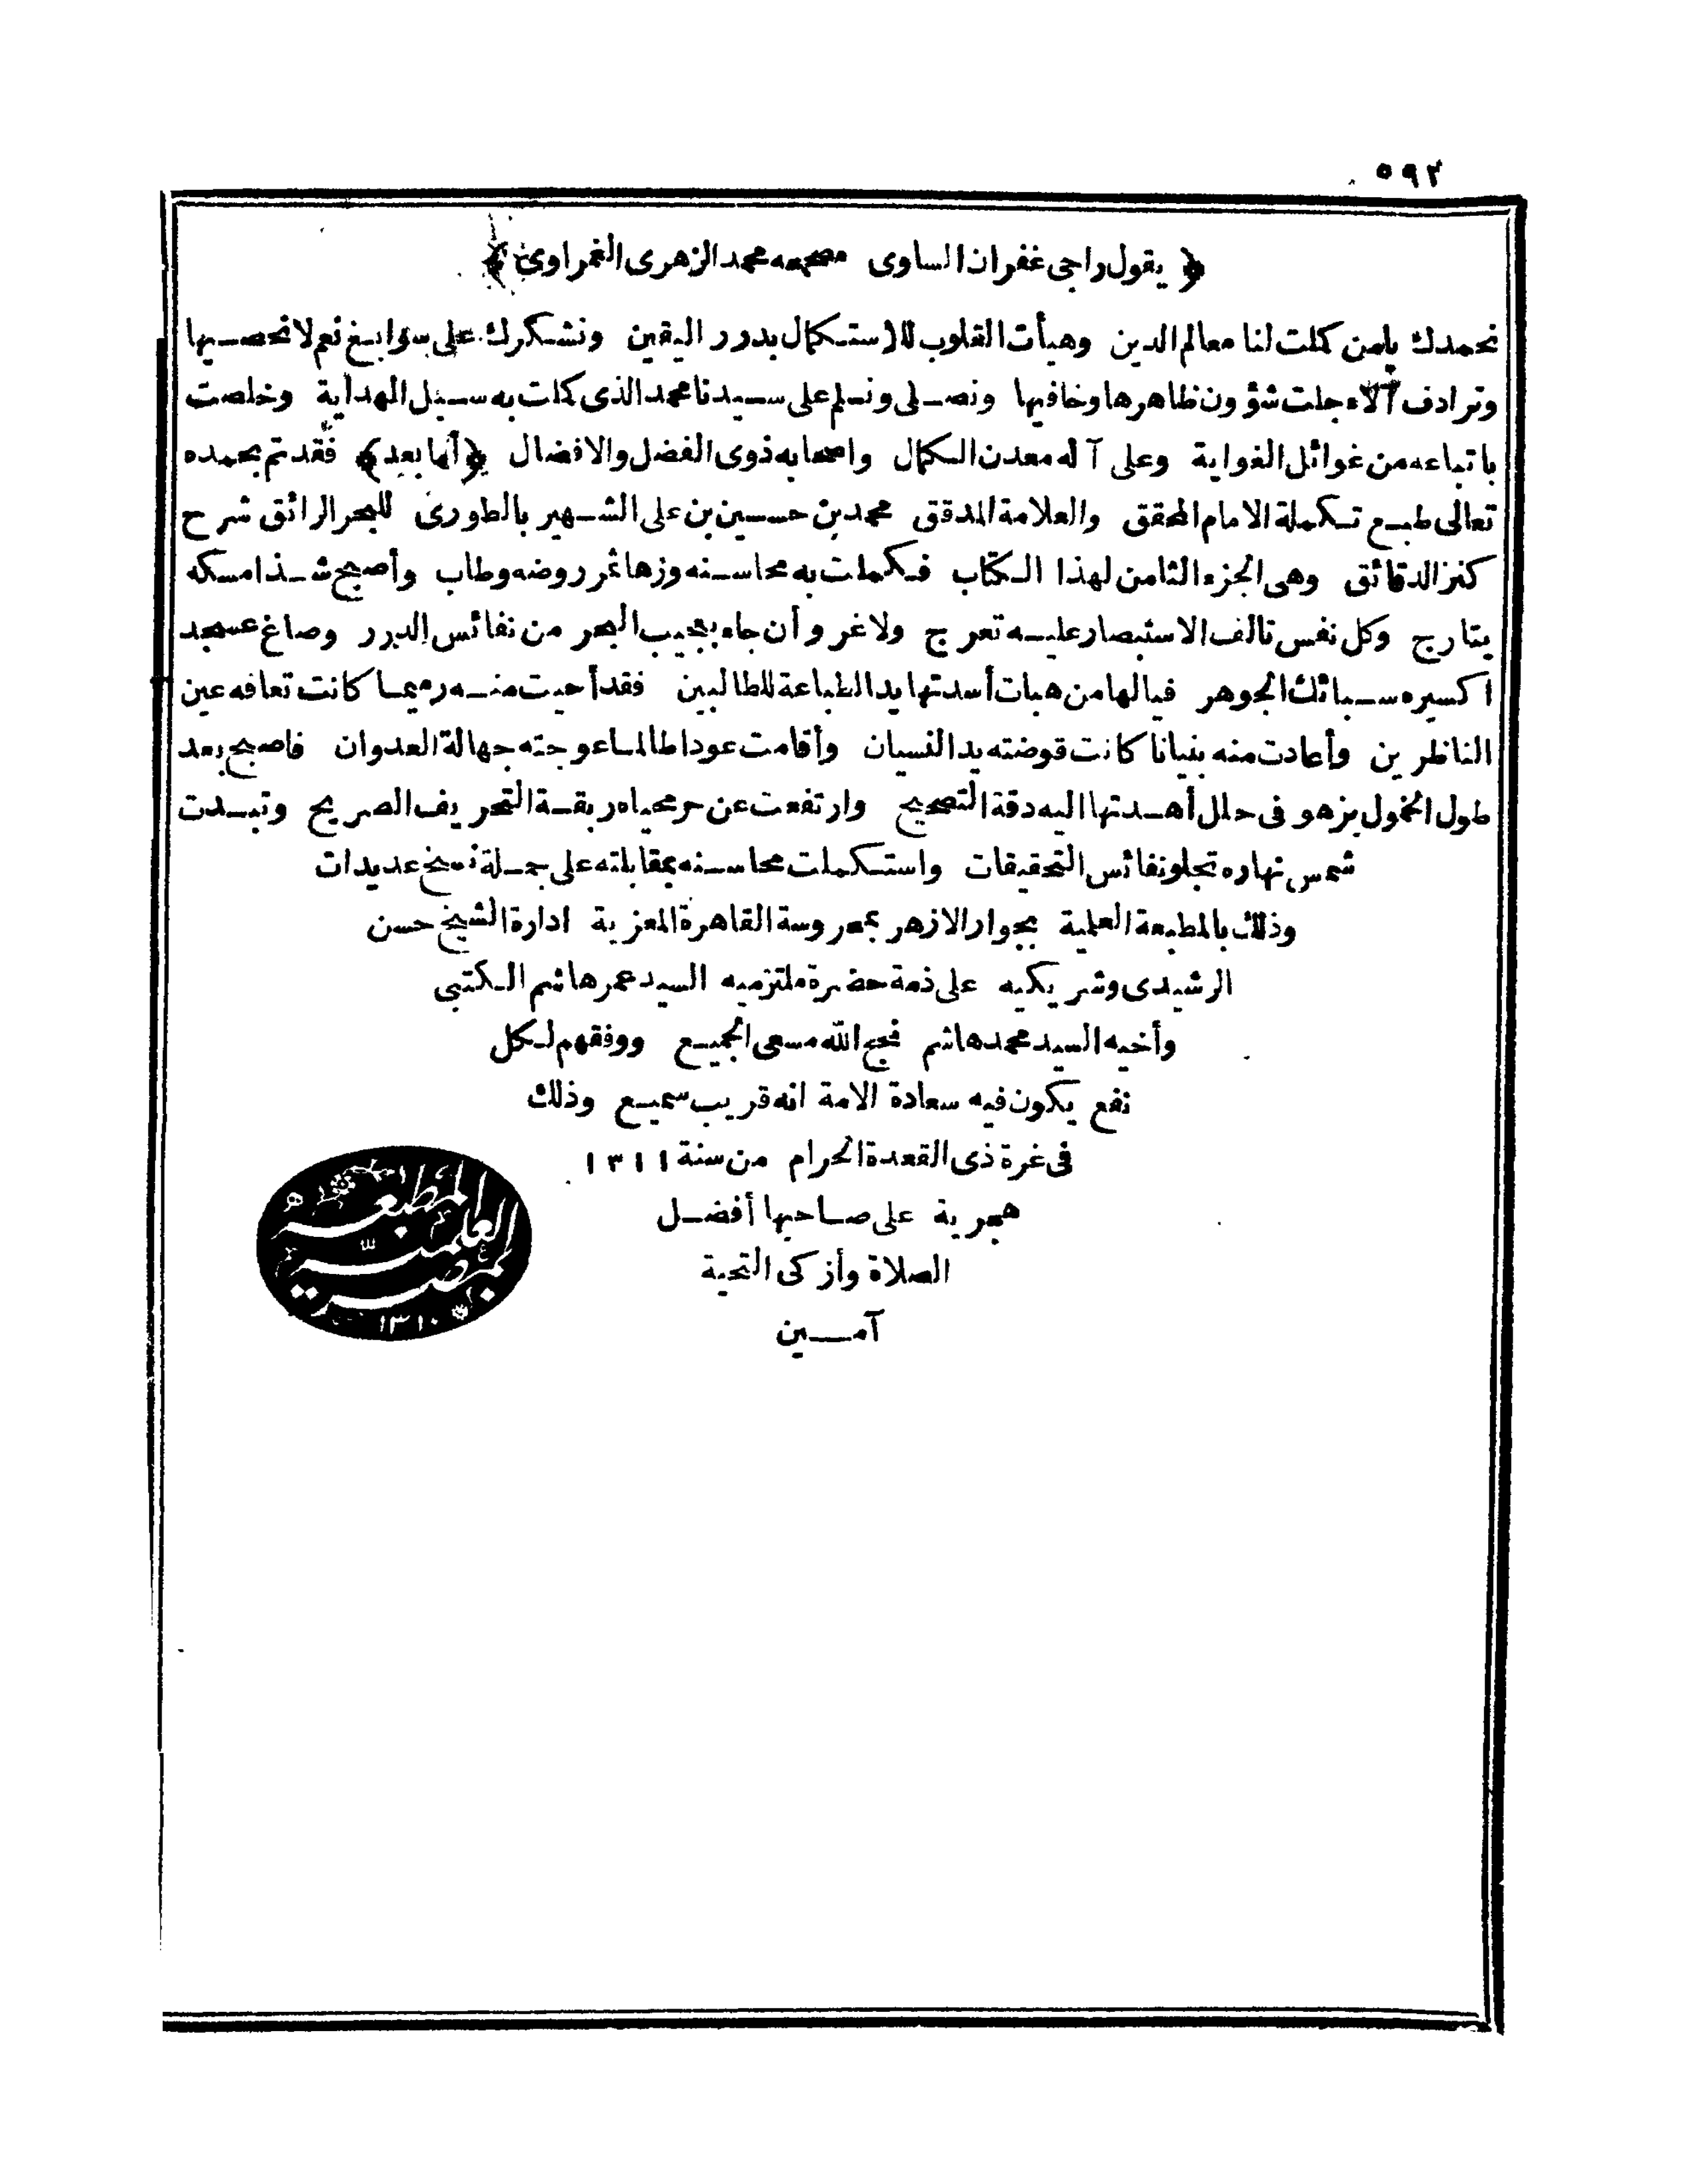 ٥٩٢
﴿ يقول راجى غفران المساوى مصححه محمد الزهرى الغمراوى ﴾
نحمدك يامن كملت لنا معالم الدين وهيأت القلوب للاستكمال بدرر اليقين ونشكرك على سوابغ نعم لا نحصيها
وترادف آلاء جلت شؤون ظاهرها وخافيها ونصلى ونسلم على سيدنا محمد الذى كملت به سبل الهداية وخلصت
باتباعه من غوائل الغواية وعلى آله معدن الكمال واصحابه ذوى الفضل والافضال ﴿أما بعد﴾ فقد تم بحمده
تعالى طبع تكملة الامام المحقق والعلامة المدقق محمد بن حسين بن على الشهير بالطورى للبحر الرائق شرح
كنز الدقائق وهى الجزء الثامن لهذا الكتاب فكملت به محاسنه وزها ثمر روضه وطاب وأصبح شذا مسكه
يتارج وكل نفس تالف الاستبصار عليه تعرج ولا غر وأن جاء بعجيب البحر من نفائس الدرر وصاغ عسجد
اكسيره سبائك الجوهر فيالها من هبات أسدتها يد الطباعة للطالبين فقد أحيت منه رميما كانت تعافه عين
الناظرين وأعادت منه بنيانا كانت قوضته يد النسيان وأقامت عودا طالما عوجته جهالة العدوان فاصبح بعد
طول الخمول يزهو فى حلل أهدتها اليه دقة التصحيح وارتفعت عن حر محياه ربقة التحريف الصريح وتبدت
شمس نهاره تجلو نفائس التحقيقات واستكملت محاسنه بمقابلته على جملة نسخ عديدات
وذلك بالمطبعة العلمية بجوار الازهر بمحروسة القاهرة المعزية ادارة الشيخ حسن
الرشيدى وشريكيه على ذمة حضرة ملتزميه السيد عمر هاشم الكتبى
وأخيه السيد محمد هاشم نجح الله مسعى الجميع ووفقهم لكل
نفع يكون فيه سعادة الامة انه قريب سميع وذلك
فى غرة ذى القعدة الحرام من سنة ١٣١١
هجرية على صاحبها أفضل
الصلاة وأزكى التحية
آمين
المطبعة
العلمية
المصرية
١٣١٠